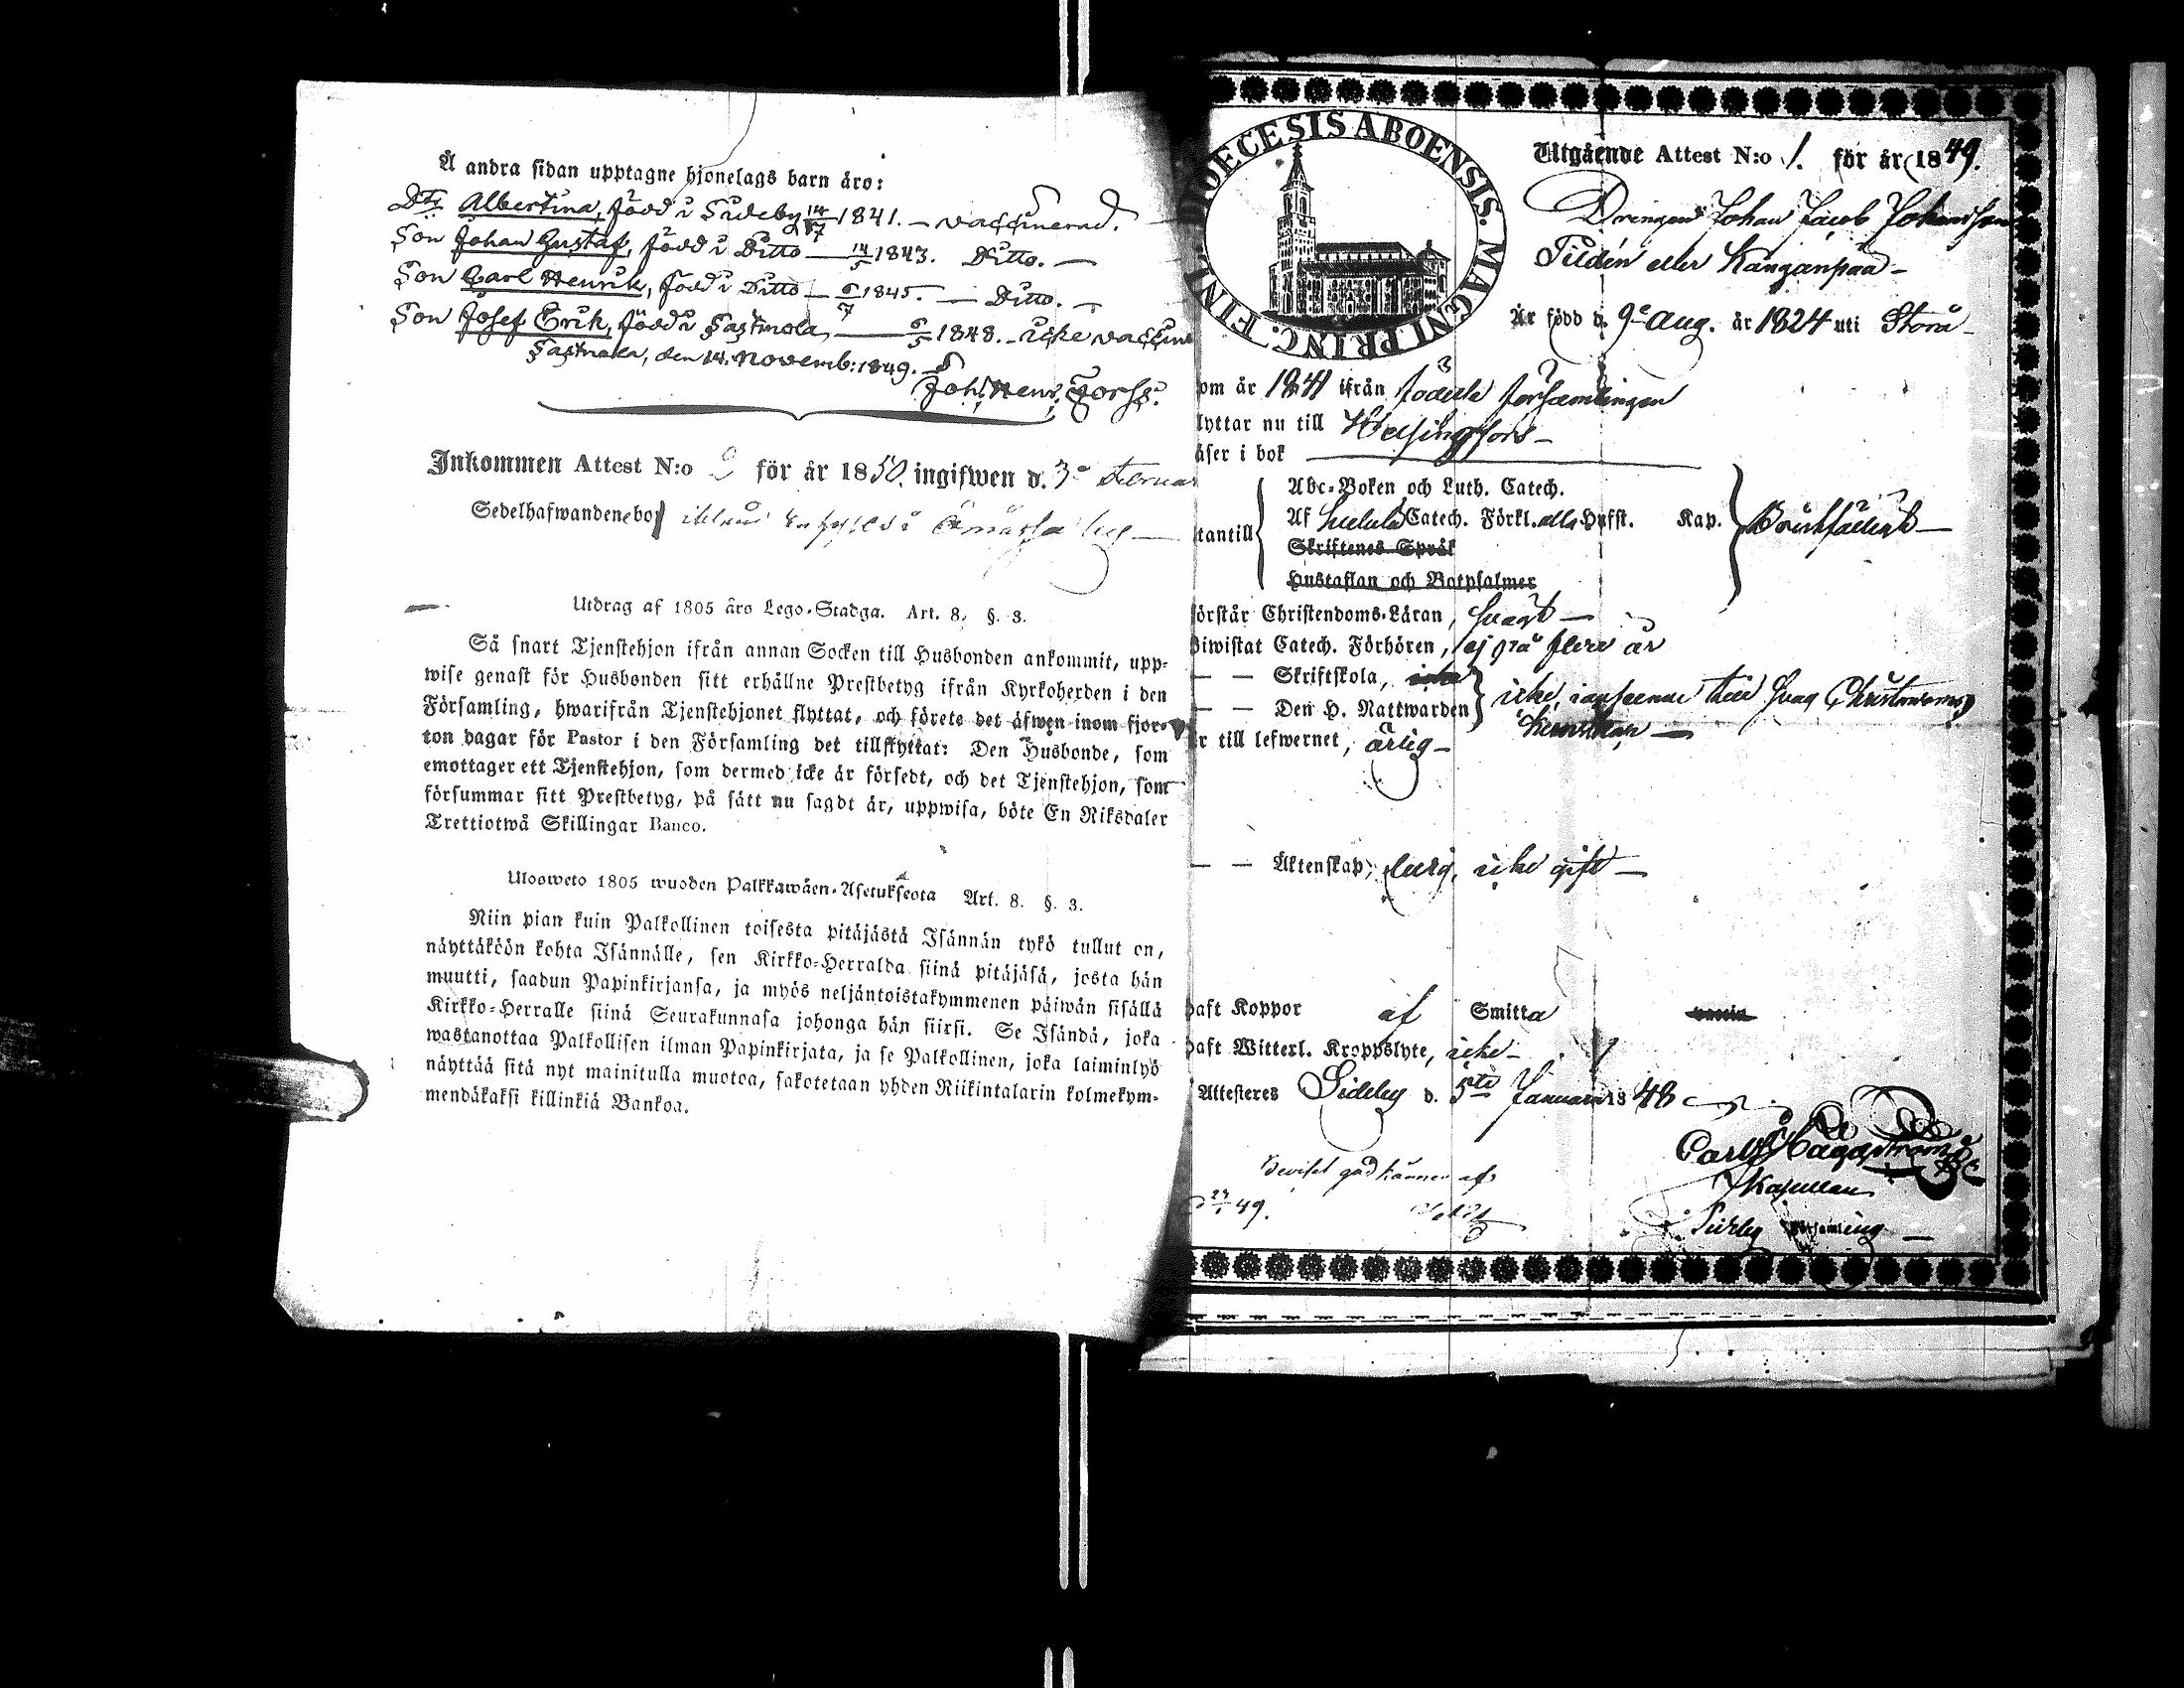 Å andra sidan upptagne hjonelags barn äro:
Dtr Albertina, född i Sideby 14/7 1841. — vaccinerad.
Son Johan Gustaf, född i Ditto — 14/5 1843. Ditto. —
Son Carl Henrik, född i Ditto — 6/7 1845. — Ditto. —
Son Josef Erik, född i Sastmola — 6/5 1848. — icke vaccine
Sastmola, den 14. Novemb: 1849.
Joh. Henr. Forss.
Inkommen Attest N:o 2 för år 1850. ingifwen d. 3e Februar
Sedelhafwanden bor
Utdrag af 1805 års Lego-Stadga. Art. 8. §. 3.
Så snart Tjenstehjon ifrån annan Socken till Husbonden ankommit, upp-
wise genast för Husbonden sitt erhållne Prestbetyg ifrån Kyrkoherden i den
Församling, hwarifrån Tjenstehjonet flyttat, och förete det äfwen inom fjor-
ton dagar för Pastor i den Församling det tillflyttat: Den Husbonde, som
emottager ett Tjenstehjon, som dermed icke är försedt, och det Tjenstehjon, som
försummar sitt Prestbetyg, på sätt nu sagdt är, uppwisa, böte En Riksdaler
Trettiotwå Skillingar Banco.
Ulosweto 1805 wuoden Palkkawäen-Asetuksesta Art. 8. §. 3.
Niin pian kuin Palkollinen toisesta pitäjästä Isännän tykö tullut on,
näyttäköön kohta Isännälle, sen Kirkko-Herralda siinä pitäjäsä, josta hän
muutti, saadun Papinkirjansa, ja myös neljäntoistakymmenen päiwän sisällä
Kirkko-Herralle siinä Seurakunnasa johonga hän siirsi. Se Isändä, joka
wastanottaa Palkollisen ilman Papinkirjata, ja se Palkollinen, joka laiminlyö
näyttää sitä nyt mainitulla muotoa, sakotetaan yhden Riikintalarin kolmekym-
mendäkaksi killinkiä Bankoa.
DIOECESIS ABOENSIS. MAGNI PRINC. FINL.
Utgående Attest N:o 1. för år 1849.
Drengen Johan Jacob Johansson
Tildén eller Kanganpää —
Är född d. 9e Aug. år 1824 uti Storå —
om år 1841 ifrån födelse församlingen
lyttar nu till Helsingfors —
äser i bok
Abc-Boken och Luth. Catech.
Af Catech. Förkl. alla Hufst. Kap.
tantill
Skriftenes Språk
Hustaflan och Botpsalmer
örstår Christendoms-Läran, svagt —
Biwistat Catech. Förhören, ej på flere år
— — Skriftskola, icke
— — Den H. Nattwarden icke, i anseende till svag Christendoms
kunskap —
r till lefwernet, ärlig —
— — Äktenskap, ledig, icke gift —
haft Koppor af Smitta vaccin
haft Witterl. Kroppslyte, icke —
Attesteres Sideby d. 5te Januari 1848
Carl Häggström
Kapellan
Sideby Församling —
Beviset godkännes af
49.